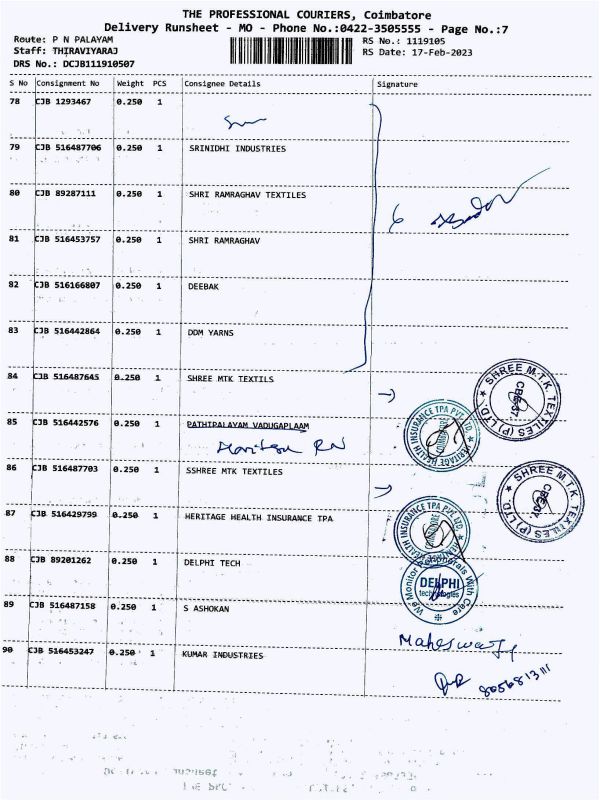 THE PROFESSIONAL COURIERS, Coimbatore
Delivery Runsheet - MO - Phone No.:0422-3505555 - Page No.:7
Route: P N PALAYAM
RS No.: 1119105
Staff: THIRAVIYARAJ
RS Date: 17-Feb-2023
DRS No.: DCJB111910507
S No Consignment No Weight PCS Consignee Details Signature
78 CJB 1293467 0.250 1
79 CJB 516487706 0.250 1 SRINIDHI INDUSTRIES
80 CJB 89287111 0.250 1 SHRI RAMRAGHAV TEXTILES
6
81 CJB 516453757 0.250 1 SHRI RAMRAGHAV
82 CJB 516166807 0.250 1 DEEBAK
83 CJB 516442864 0.250 1 DDM YARNS
84 CJB 516487645 0.250 1 SHREE MTK TEXTILS
SHREE M.T.K TEXTILES (P) LTD.
CBE-37
85 CJB 516442576 0.250 1 PATHIPALAYAM VADUGAPLAAM
HERITAGE HEALTH INSURANCE TPA PVT. LTD.
COIMBATORE
86 CJB 516487703 0.250 1 SSHREE MTK TEXTILES
SHREE M.T.K TEXTILES (P) LTD.
CBE-37
87 CJB 516429799 0.250 1 HERITAGE HEALTH INSURANCE TPA
HEALTH INSURANCE TPA PVT. LTD.
COIMBATORE
88 CJB 89201262 0.250 1 DELPHI TECH
We Monitor Peripherals With Care
DELPHI
technologies
89 CJB 516487158 0.250 1 S ASHOKAN
Maheswary
90 CJB 516453247 0.250 1 KUMAR INDUSTRIES
8056813111